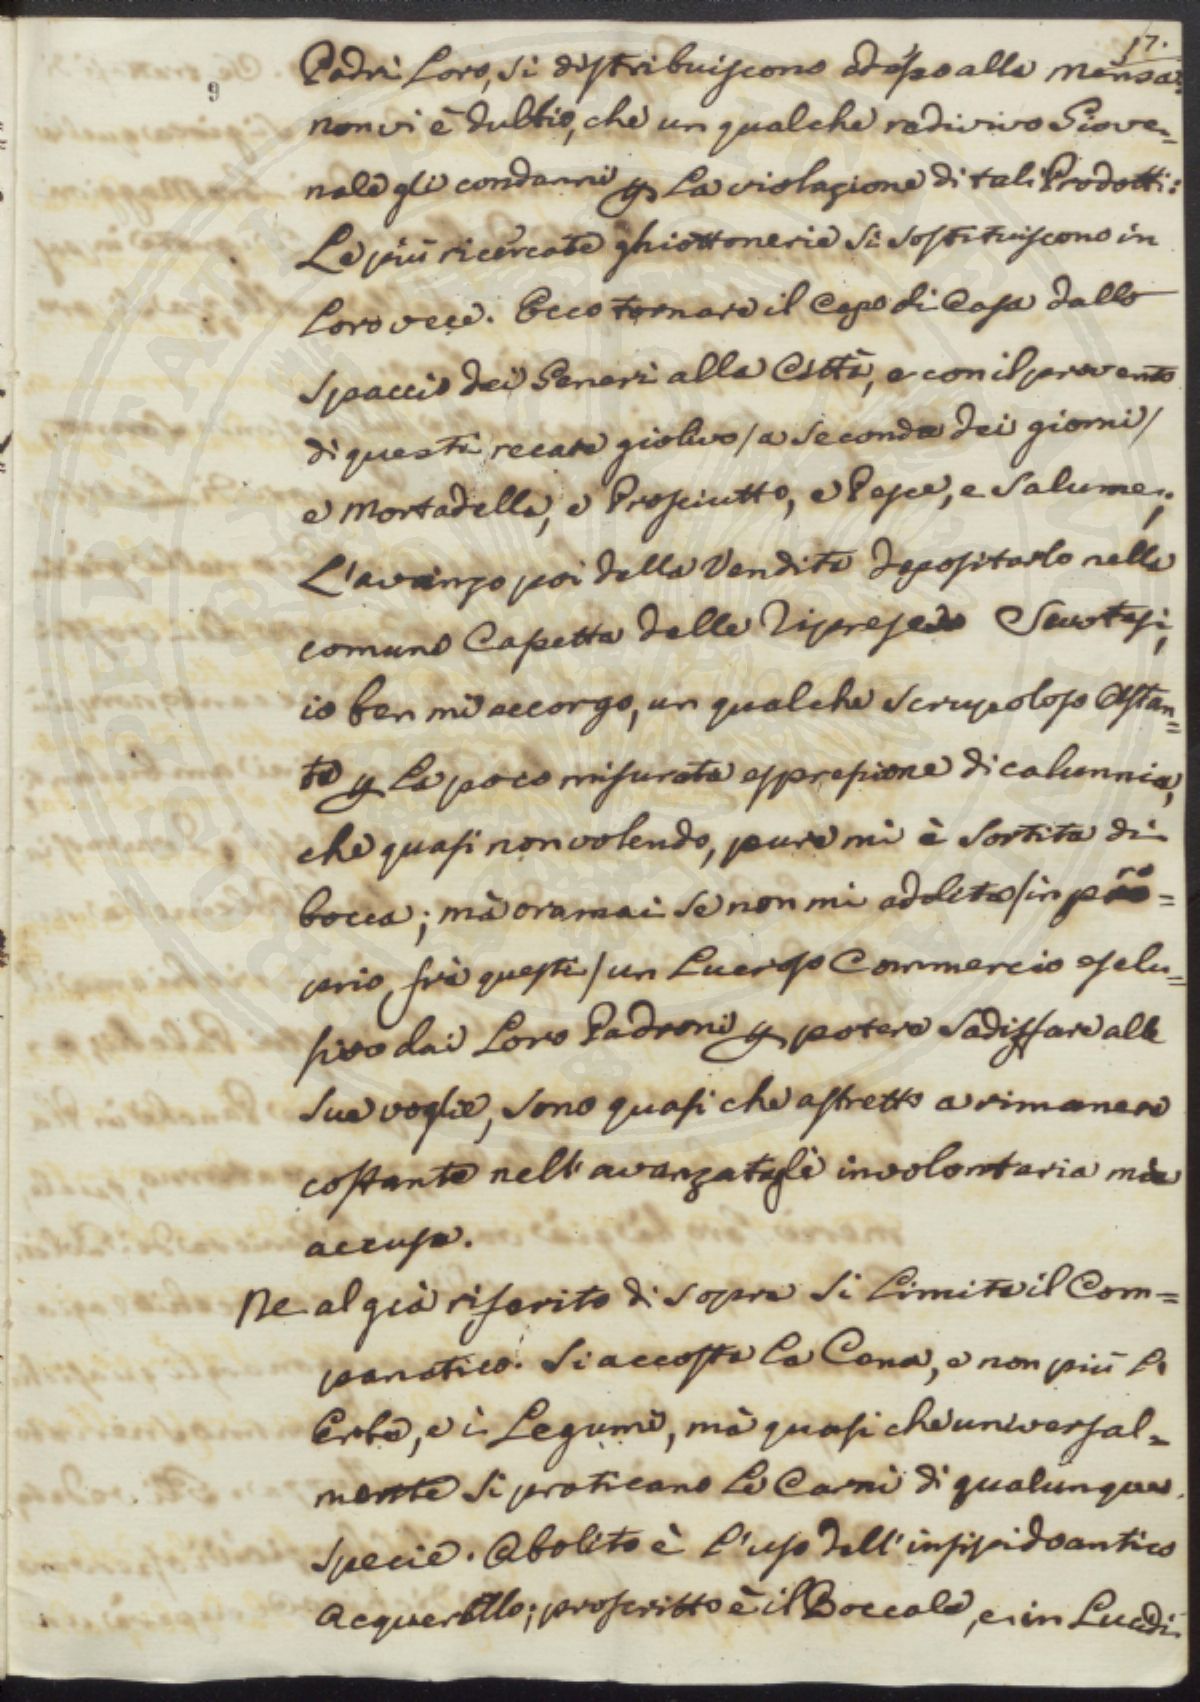 17.
9
Padri Loro, si distribuiscono adesso alla Mensa:
non vi è dubbio, che un qualche redivivo Giove=
nale gli condanni p. La violazione di tali Prodotti:
Le più ricercate ghiottonerie si sostituiscono in
Loro vece. Ecco tornare il Capo di Casa dallo
Spaccio dei Generi alla Città, e con il provento
di questi recare giolivo / a seconda dei giorni /
e Mortadella, e Prosciutto, e Pesce, e Salume;
L'avanzo poi della Vendita depositarlo nella
comune Casetta delle Riprese. Scuotesi,
io ben mi accorgo, un qualche scrupoloso Astan=
te p. La poco misurata espressione di calunnia,
che quasi non volendo, pure mi è sortita di
bocca; mà oramai se non mi addita / in pro=
prio, frà questi / un Lucroso Commercio esclu=
sivo dai Loro Padroni p. potere sadisfare alle
sue voglie, sono quasi che astretto a rimanere
costante nell' avanzatasi involontaria mia
accusa.
Ne al già riferito di sopra si Limita il Com=
panatico. Si accosta La Cena, e non più L'
Erbe, e i Legumi, mà quasi che universal=
mente si praticano Le Carni di qualunque
specie. Abolito è L'uso dell' insipido antico
Acquerello; proscritto è il Boccale, e in Lucidi